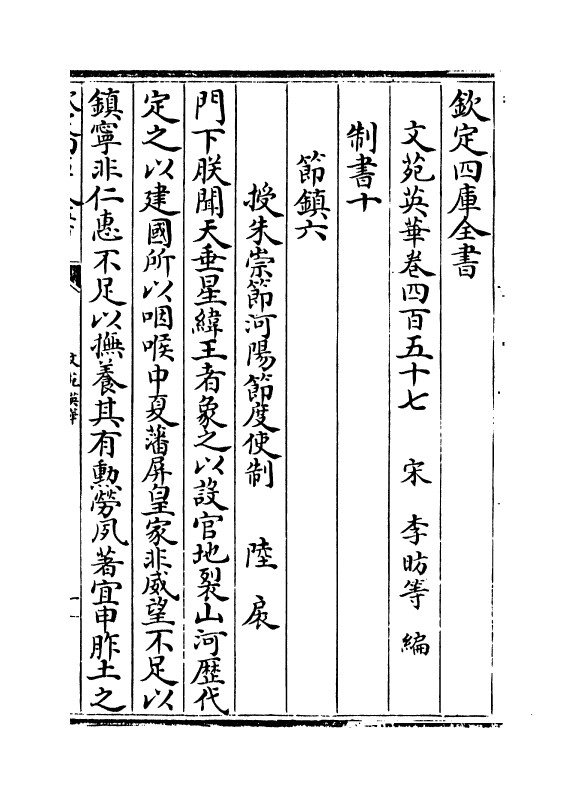 欽定四庫全書
文苑英華卷四百五十七 宋 李昉等 編
制書十
節鎮六
授朱崇節河陽節度使制 陸扆
門下朕聞天垂星緯王者象之以設官地裂山河歷代
定之以建國所以咽喉中夏藩屏皇家非威望不足以
鎮寧非仁惠不足以撫養其有勲勞夙著宜申胙土之
文苑英華